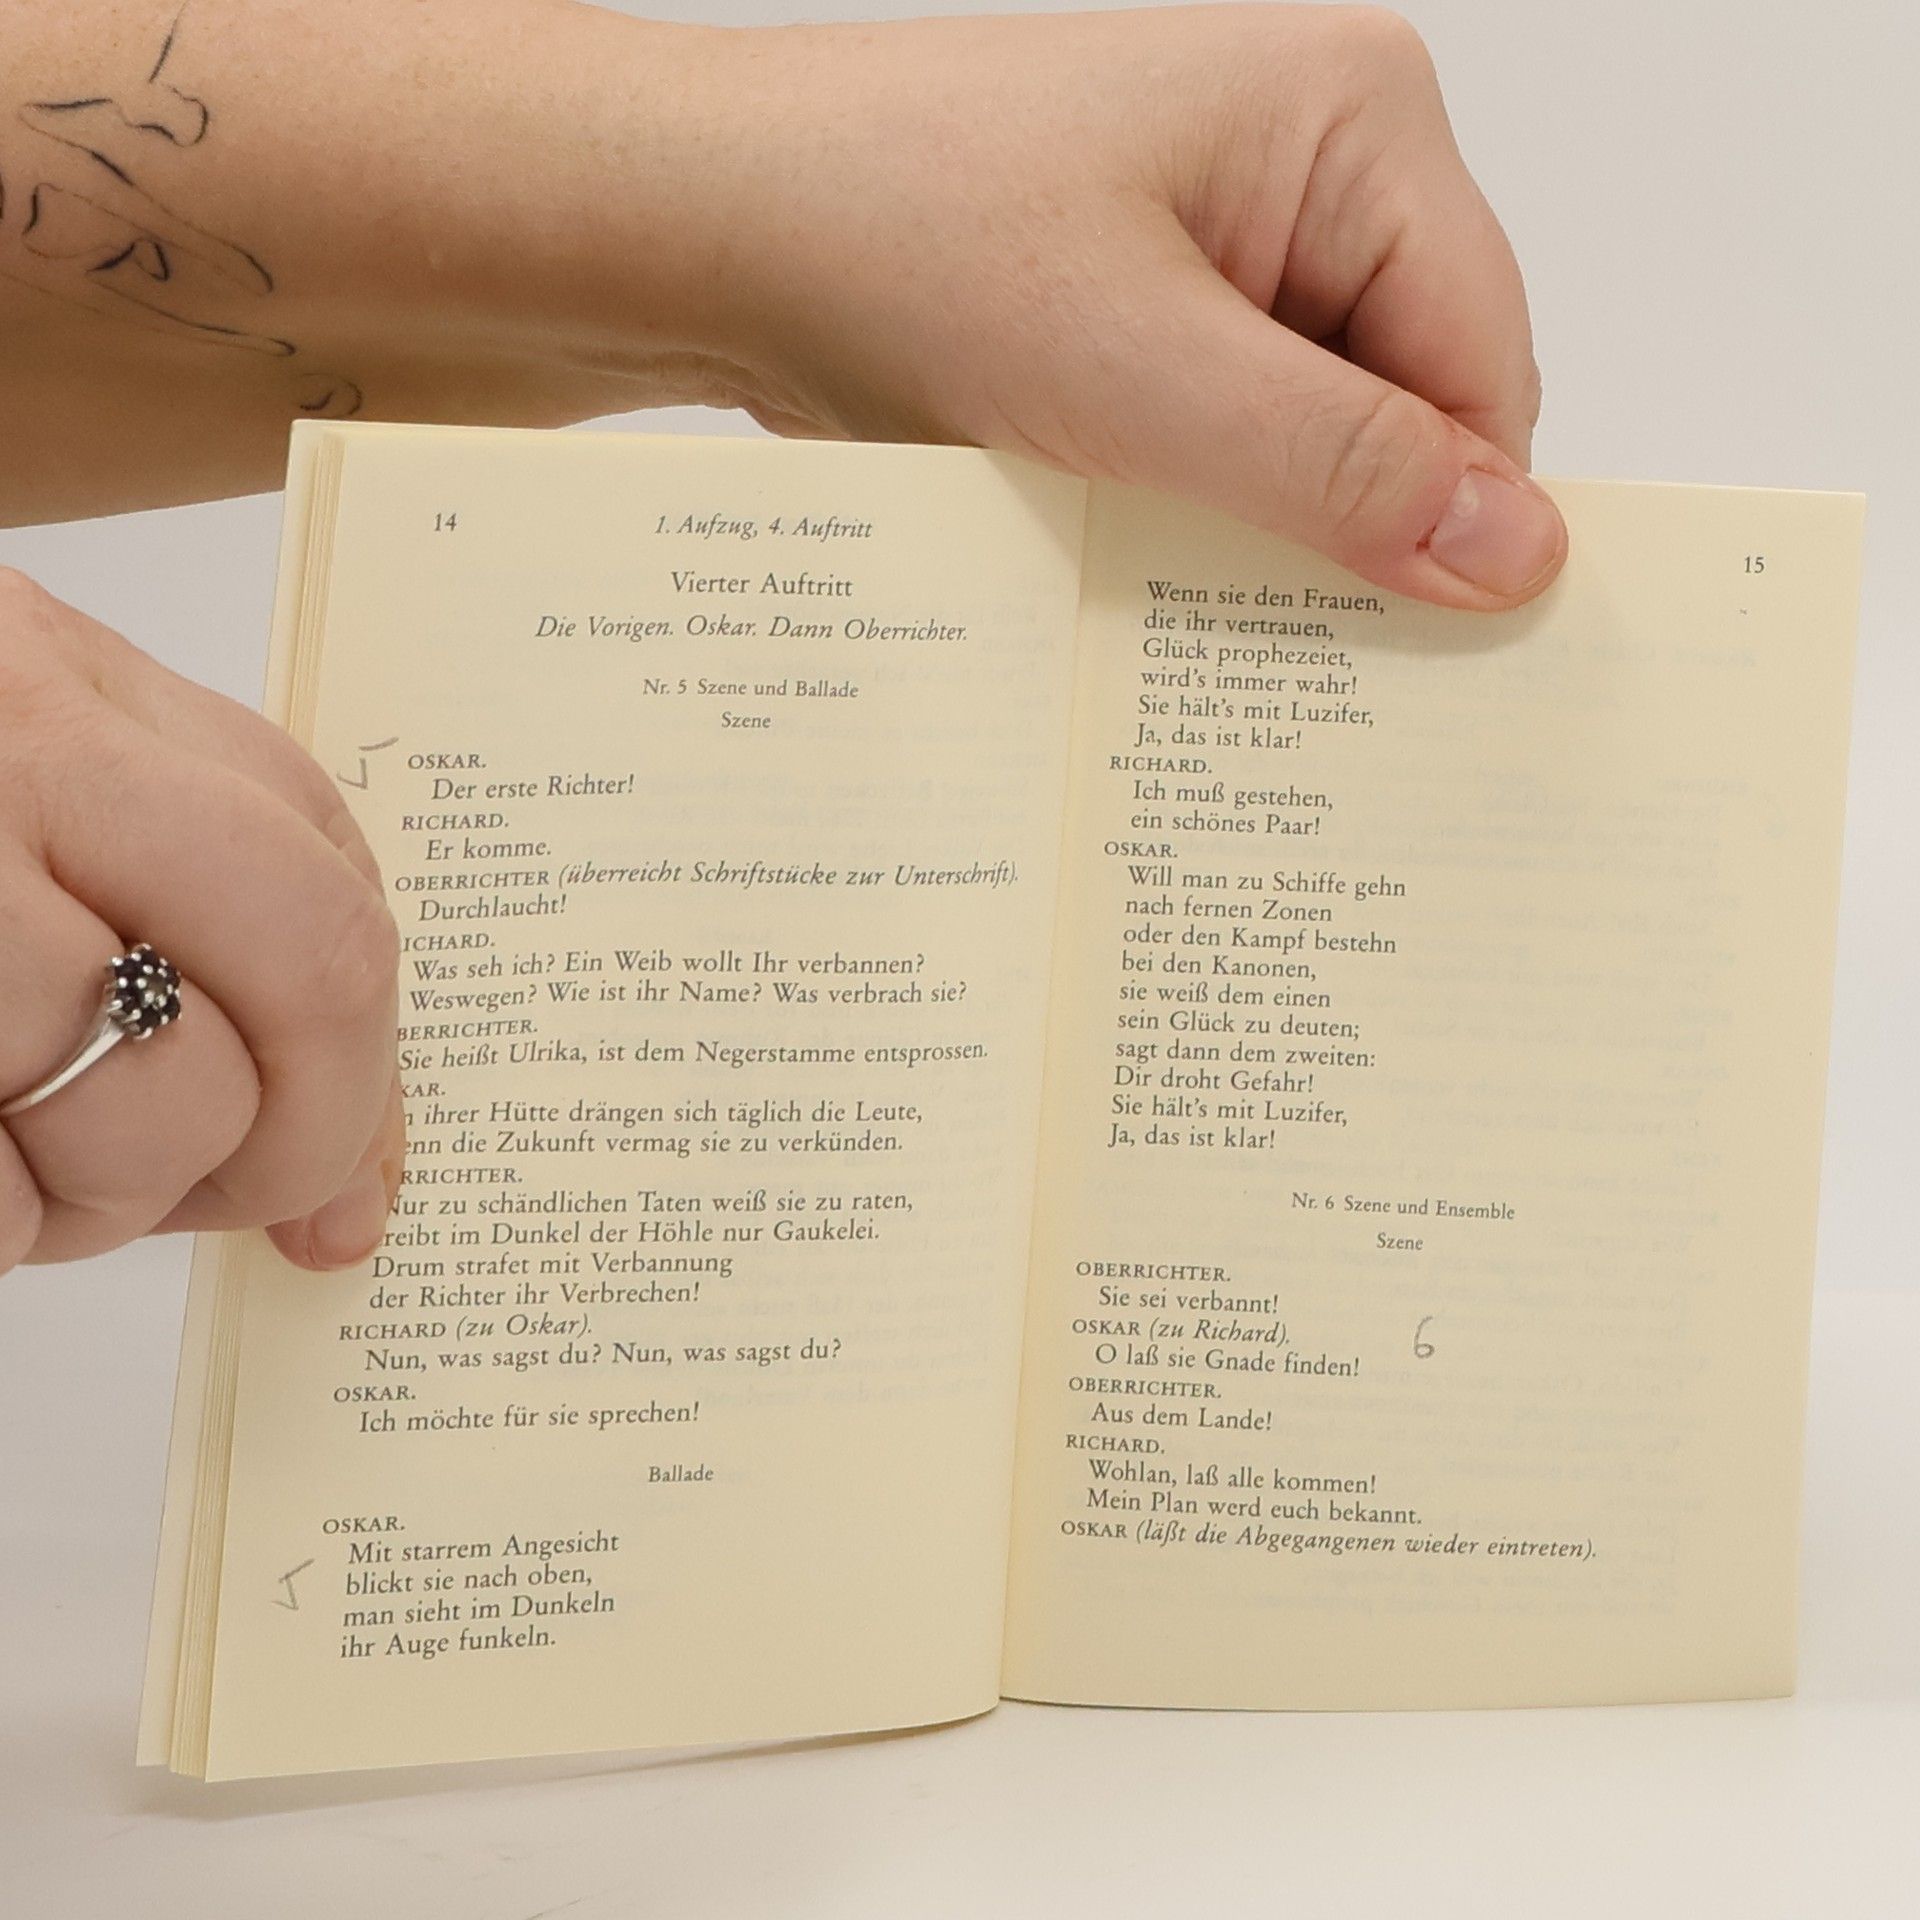 14
1. Aufzug, 4. Auftritt
Vierter Auftritt
Die Vorigen. Oskar. Dann Oberrichter.
Nr. 5 Szene und Ballade
Szene
OSKAR.
Der erste Richter!
RICHARD.
Er komme.
OBERRICHTER (überreicht Schriftstücke zur Unterschrift).
Durchlaucht!
ICHARD.
Was seh ich? Ein Weib wollt Ihr verbannen?
Weswegen? Wie ist ihr Name? Was verbrach sie?
BERRICHTER.
Sie heißt Ulrika, ist dem Negerstamme entsprossen.
KAR.
n ihrer Hütte drängen sich täglich die Leute,
enn die Zukunft vermag sie zu verkünden.
RRICHTER.
Nur zu schändlichen Taten weiß sie zu raten,
reibt im Dunkel der Höhle nur Gaukelei.
Drum strafet mit Verbannung
der Richter ihr Verbrechen!
RICHARD (zu Oskar).
Nun, was sagst du? Nun, was sagst du?
OSKAR.
Ich möchte für sie sprechen!
Ballade
OSKAR.
Mit starrem Angesicht
blickt sie nach oben,
man sieht im Dunkeln
ihr Auge funkeln.
15
Wenn sie den Frauen,
die ihr vertrauen,
Glück prophezeiet,
wird's immer wahr!
Sie hält's mit Luzifer,
Ja, das ist klar!
RICHARD.
Ich muß gestehen,
ein schönes Paar!
OSKAR.
Will man zu Schiffe gehn
nach fernen Zonen
oder den Kampf bestehn
bei den Kanonen,
sie weiß dem einen
sein Glück zu deuten;
sagt dann dem zweiten:
Dir droht Gefahr!
Sie hält's mit Luzifer,
Ja, das ist klar!
Nr. 6 Szene und Ensemble
Szene
OBERRICHTER.
Sie sei verbannt!
OSKAR (zu Richard).
O laß sie Gnade finden! 6
OBERRICHTER.
Aus dem Lande!
RICHARD.
Wohlan, laß alle kommen!
Mein Plan werd euch bekannt.
OSKAR (läßt die Abgegangenen wieder eintreten).